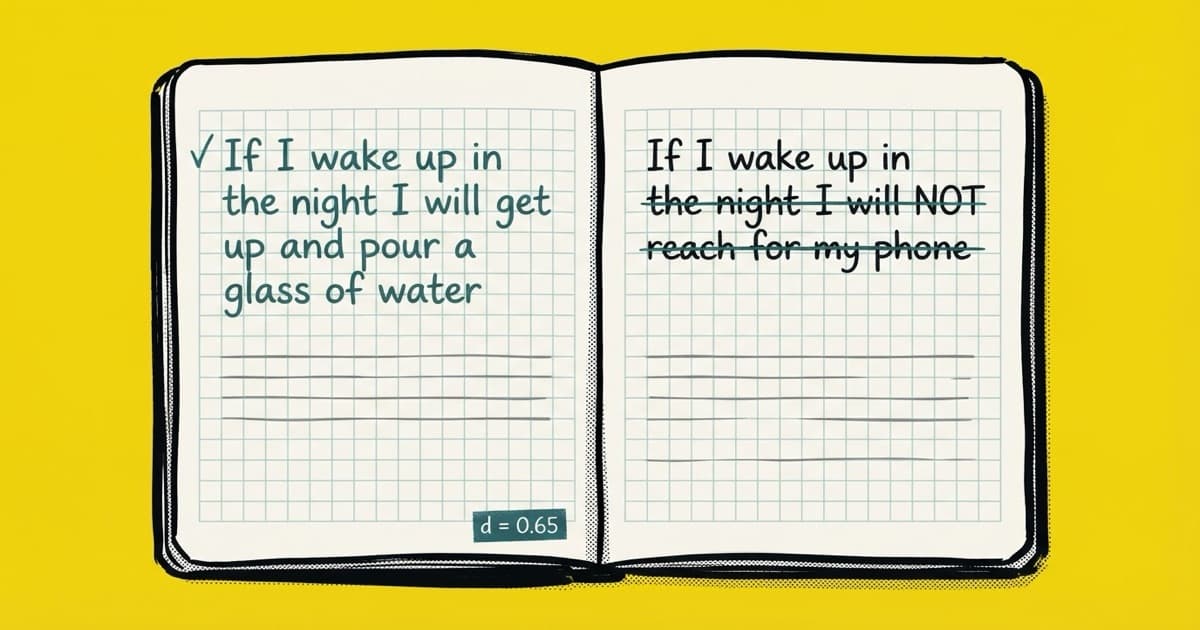 ✓ If I wake up in
the night I will get
up and pour a
glass of water
d = 0.65
If I wake up in
the night I will NOT
reach for my phone